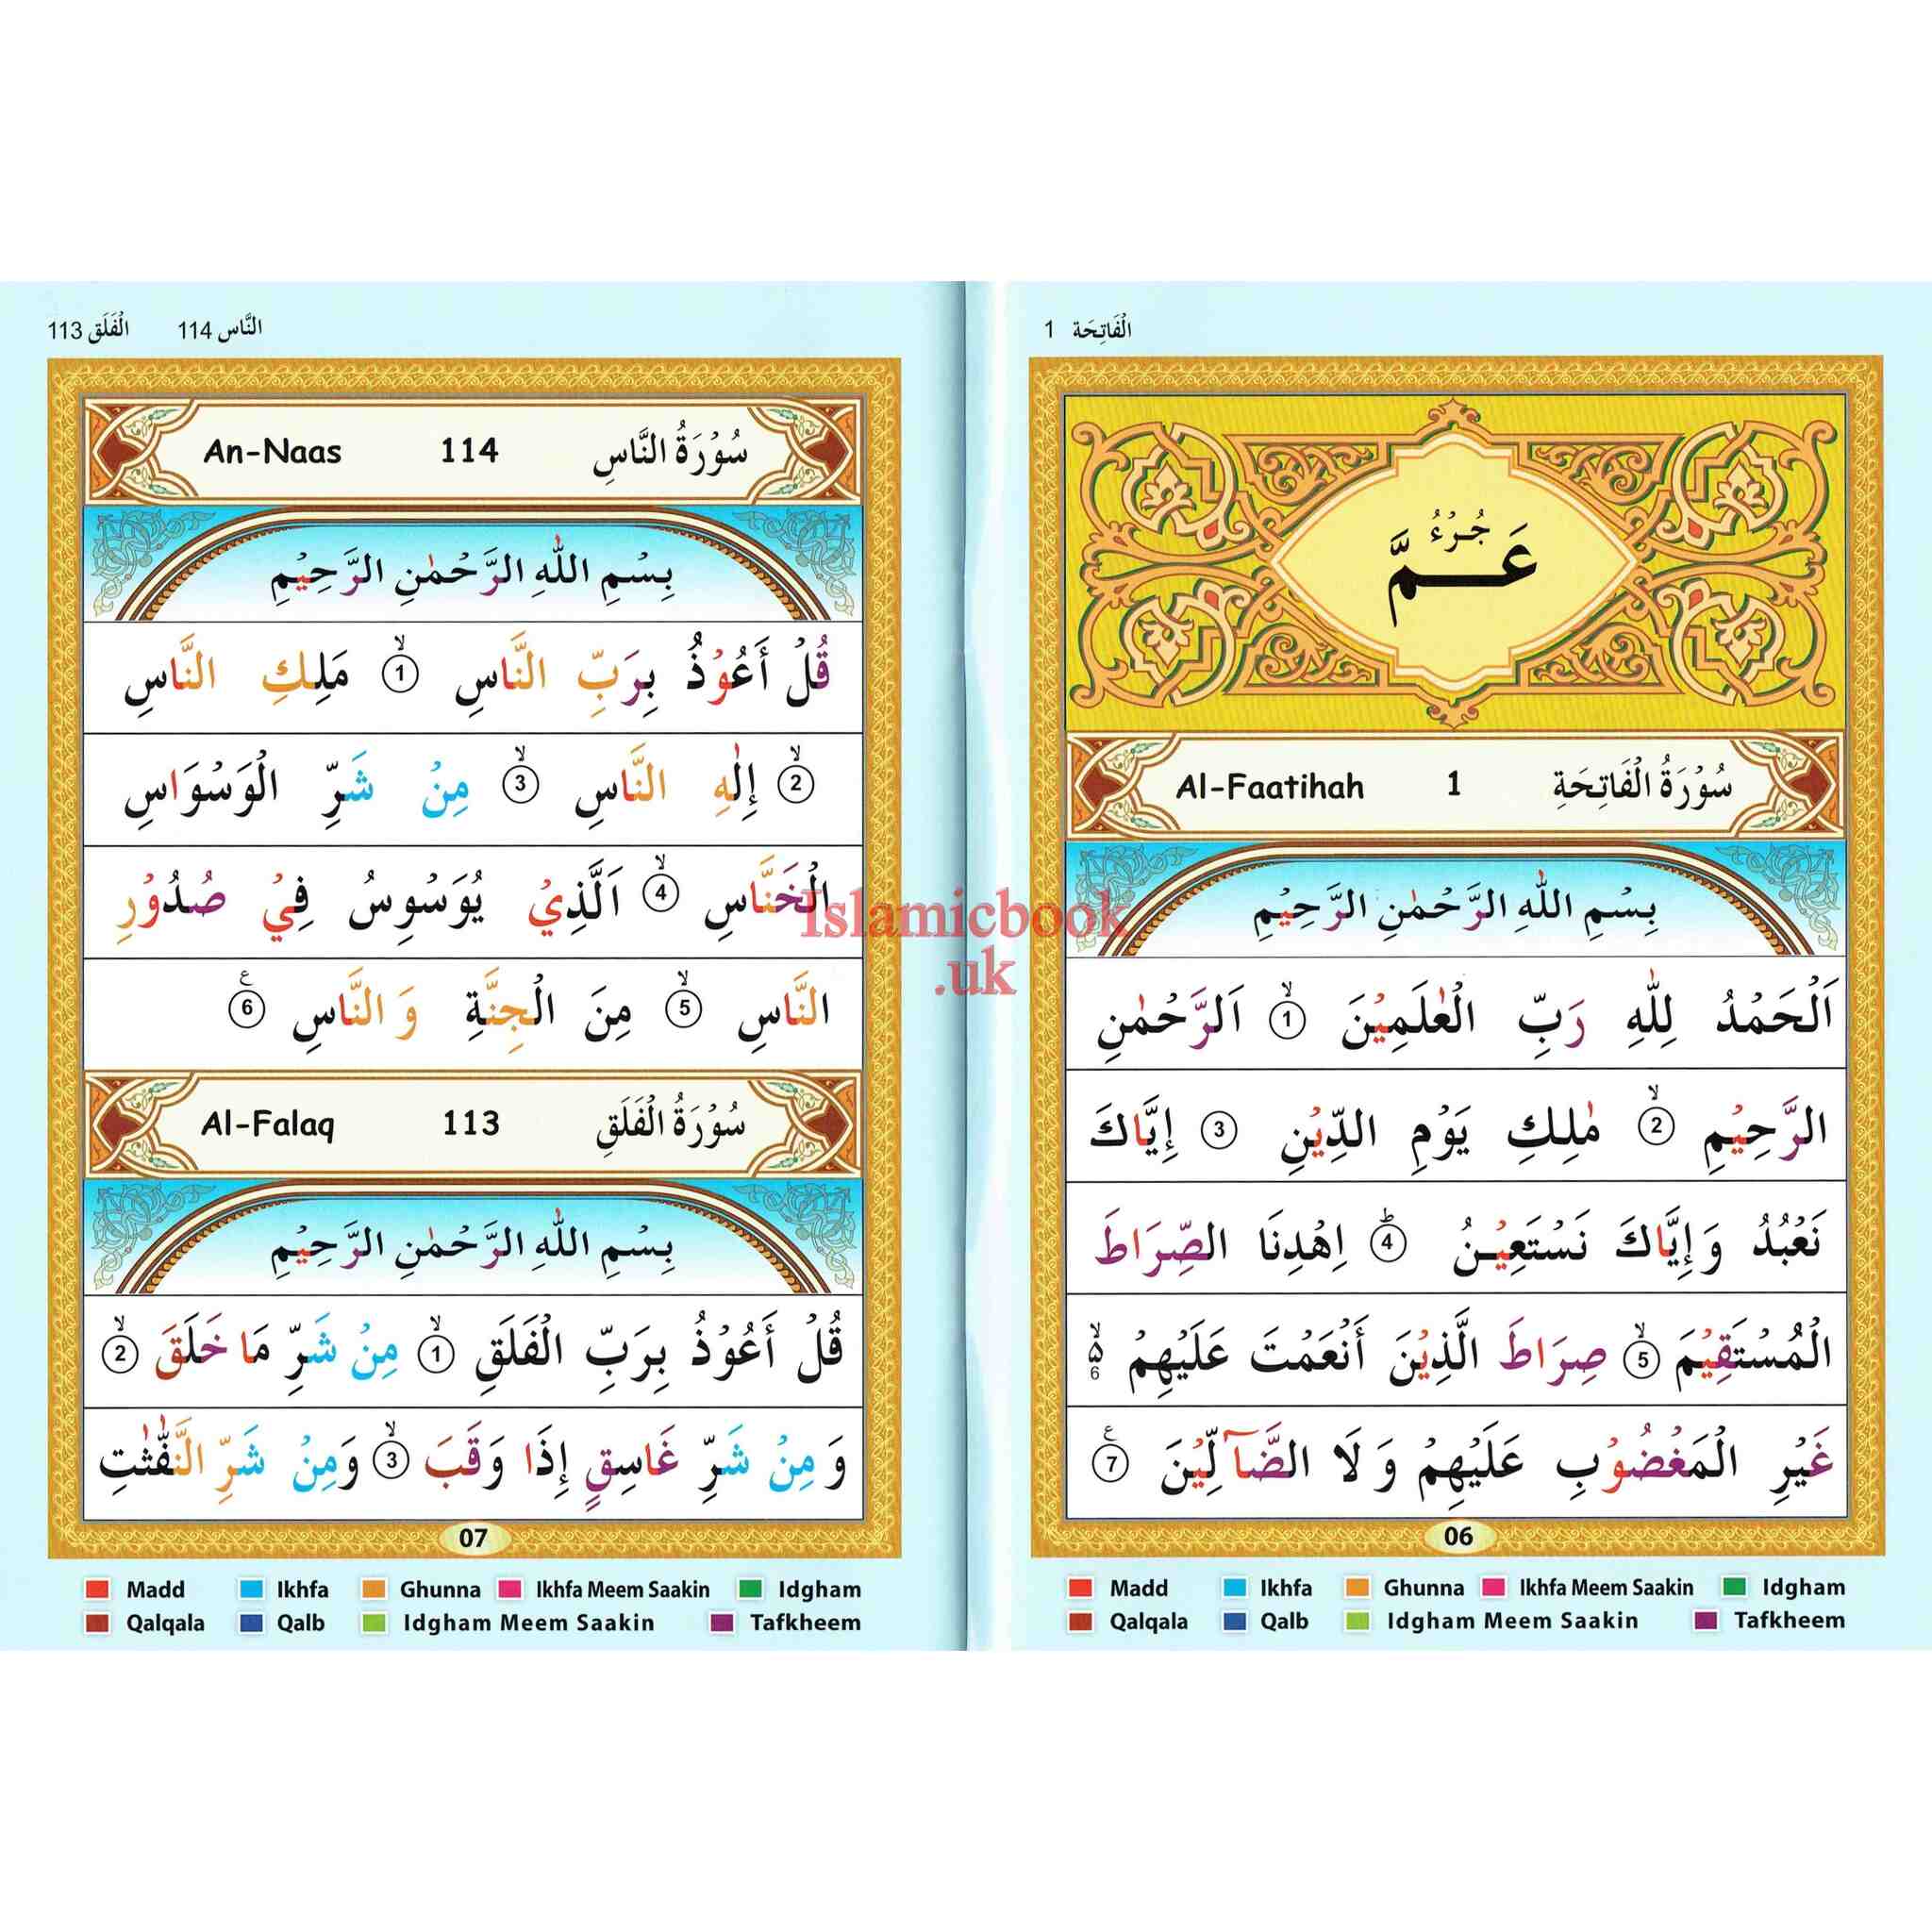 الْفَاتِحَة 1
جُزْءُ
عَمَّ
Al-Faatihah 1 سُوْرَةُ الْفَاتِحَةِ
بِسْمِ اللّٰهِ الرَّحْمٰنِ الرَّحِيْمِ
اَلْحَمْدُ لِلّٰهِ رَبِّ الْعٰلَمِيْنَ ۙ 1 اَلرَّحْمٰنِ
الرَّحِيْمِ ۙ 2 مٰلِكِ يَوْمِ الدِّيْنِ 3 إِيَّاكَ
نَعْبُدُ وَإِيَّاكَ نَسْتَعِيْنُ ؕ 4 اِهْدِنَا الصِّرَاطَ
الْمُسْتَقِيْمَ ۙ 5 صِرَاطَ الَّذِيْنَ أَنْعَمْتَ عَلَيْهِمْ ۙ ۵ 6
غَيْرِ الْمَغْضُوْبِ عَلَيْهِمْ وَلَا الضَّآلِّيْنَ ع 7
06
Madd Ikhfa Ghunna Ikhfa Meem Saakin Idgham
Qalqala Qalb Idgham Meem Saakin Tafkheem
الْفَلَق 113 النَّاس 114
An-Naas 114 سُوْرَةُ النَّاسِ
بِسْمِ اللّٰهِ الرَّحْمٰنِ الرَّحِيْمِ
قُلْ أَعُوْذُ بِرَبِّ النَّاسِ ۙ 1 مَلِكِ النَّاسِ
ۙ 2 إِلٰهِ النَّاسِ ۙ 3 مِنْ شَرِّ الْوَسْوَاسِ
الْخَنَّاسِ ۙ 4 اَلَّذِيْ يُوَسْوِسُ فِيْ صُدُوْرِ
النَّاسِ ۙ 5 مِنَ الْجِنَّةِ وَالنَّاسِ ع 6
Al-Falaq 113 سُوْرَةُ الْفَلَقِ
بِسْمِ اللّٰهِ الرَّحْمٰنِ الرَّحِيْمِ
قُلْ أَعُوْذُ بِرَبِّ الْفَلَقِ ۙ 1 مِنْ شَرِّ مَا خَلَقَ ۙ 2
وَمِنْ شَرِّ غَاسِقٍ إِذَا وَقَبَ ۙ 3 وَمِنْ شَرِّ النَّفّٰثٰتِ
07
Madd Ikhfa Ghunna Ikhfa Meem Saakin Idgham
Qalqala Qalb Idgham Meem Saakin Tafkheem
Islamicbook
.uk